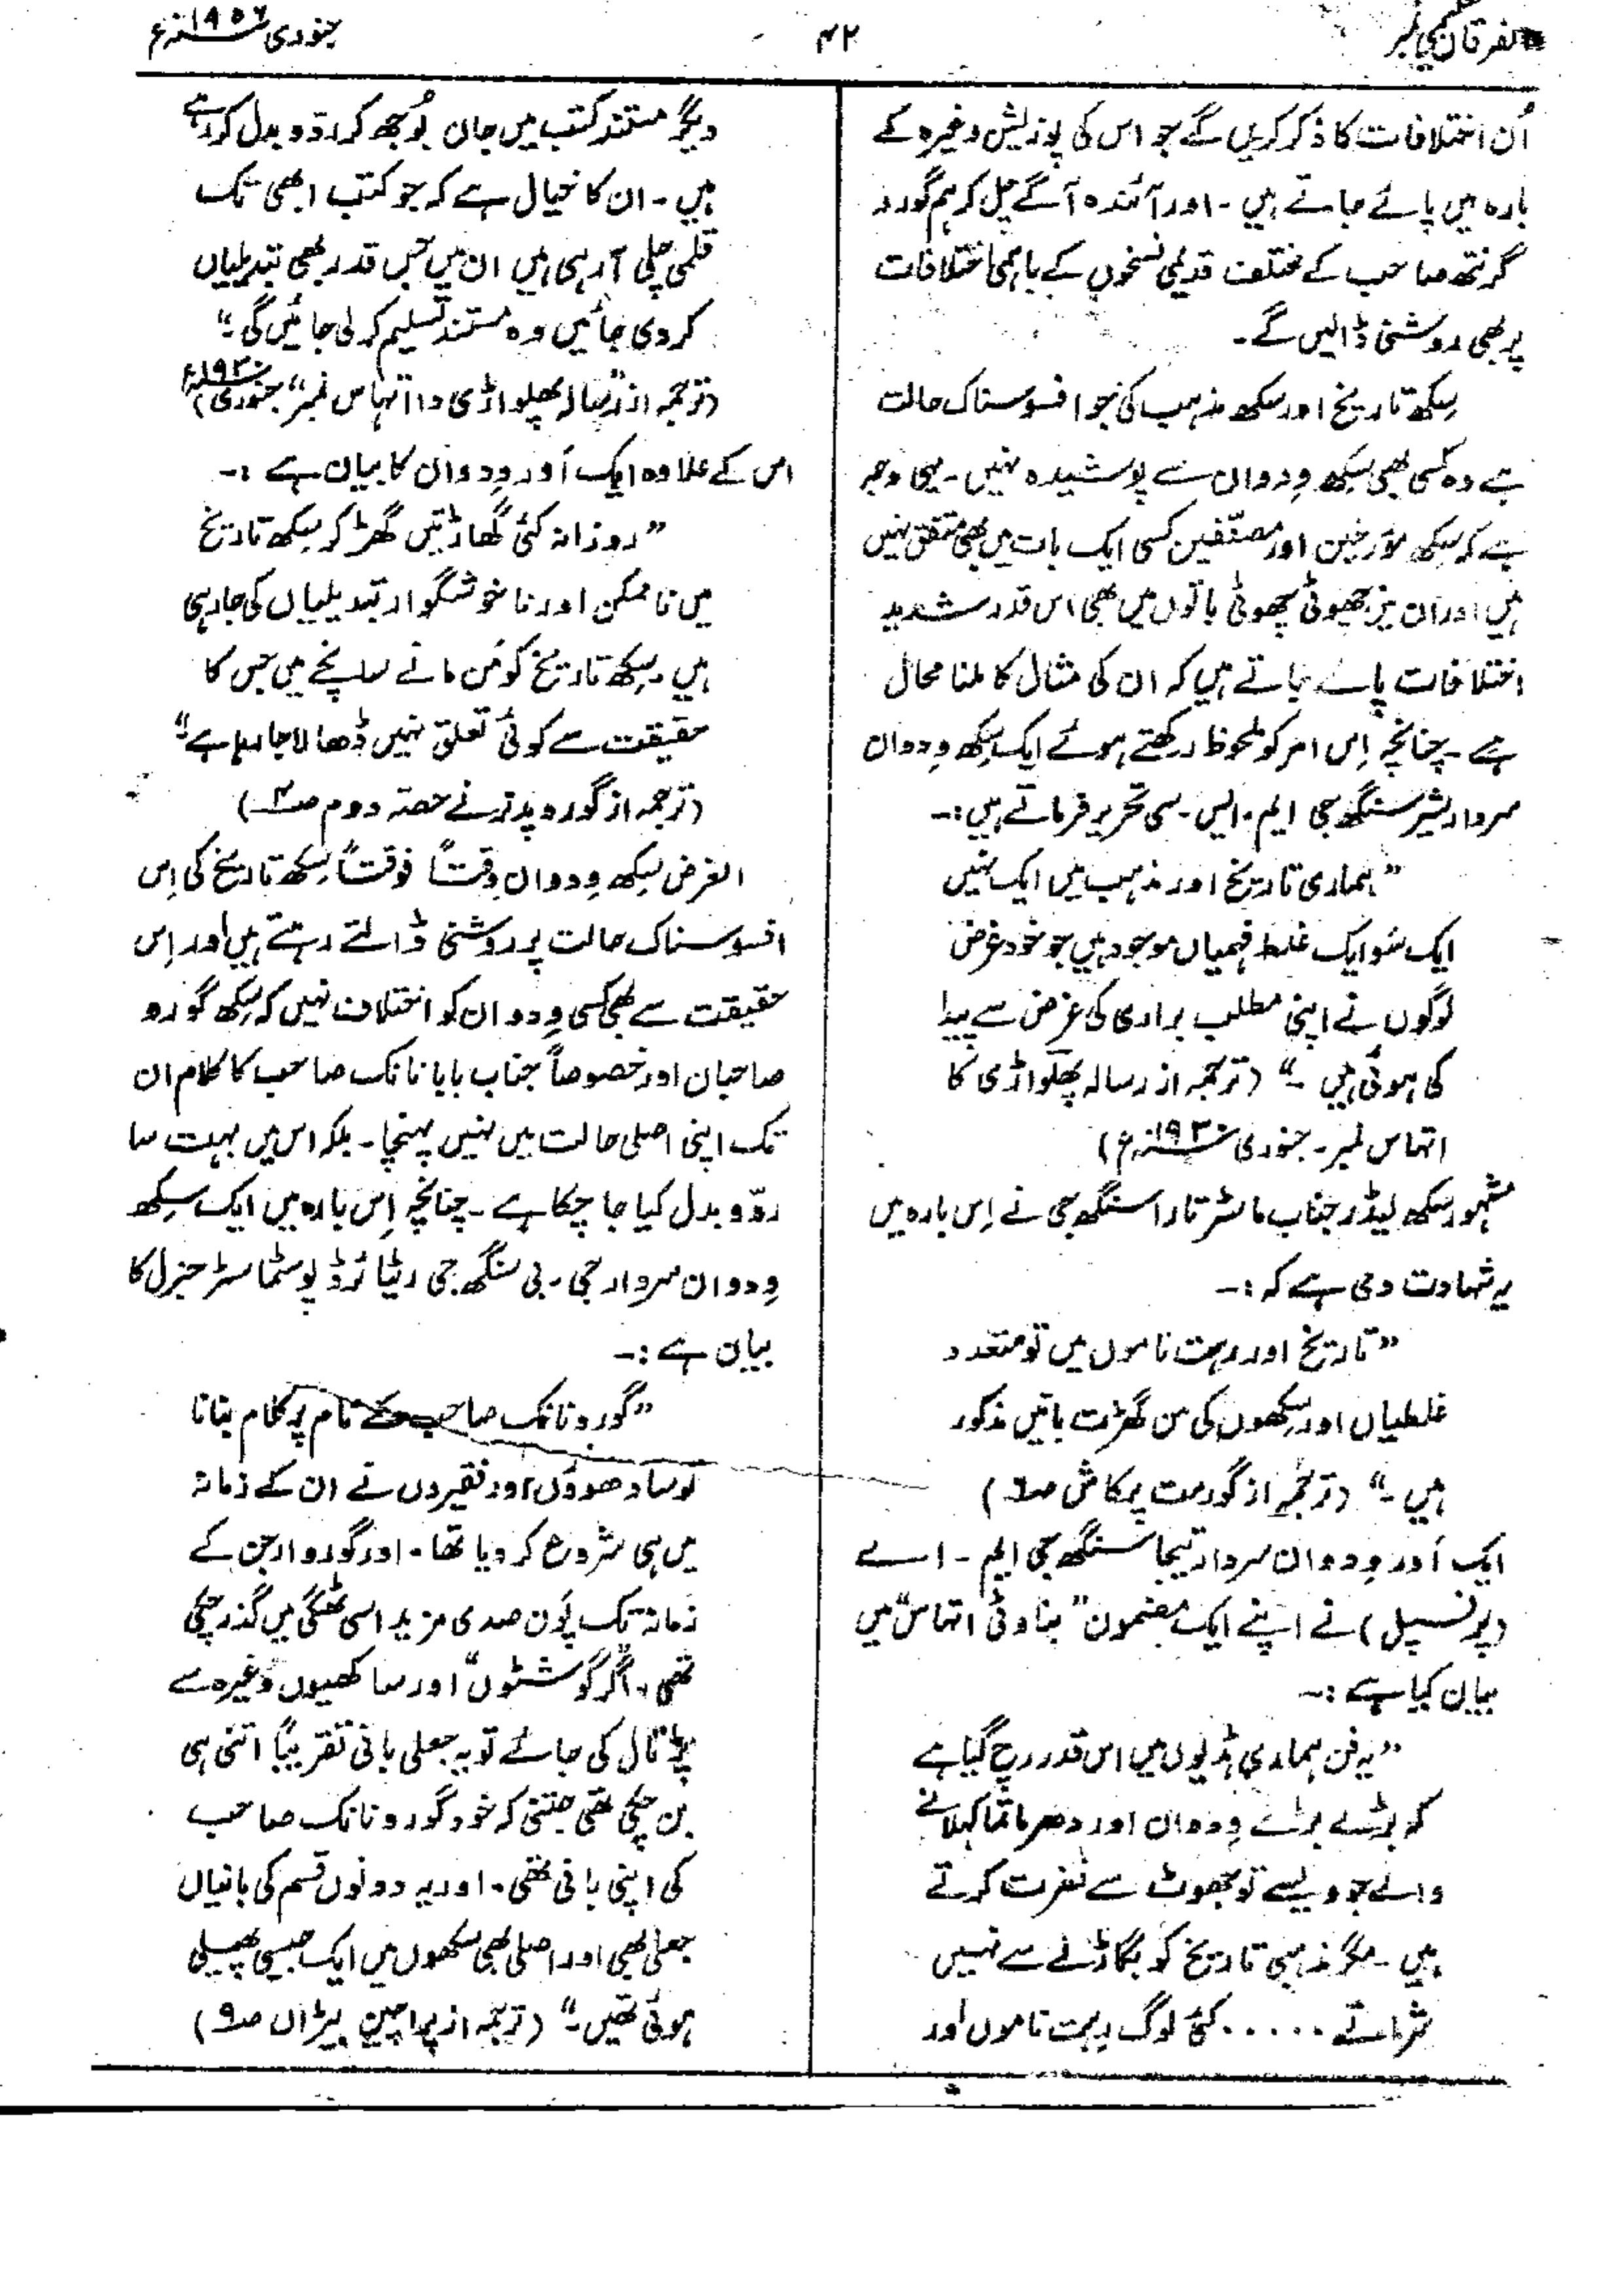 الفرقان سکھ نمبر
۴۲
جنوری ۱۹۵۶ء
اُن اختلافات کا ذکر کریں گے جو اس کی پوزیشن وغیرہ کے
بارہ میں پائے جاتے ہیں ۔ اور آئندہ آگے چل کر ہم گورو
گرنتھ صاحب کے مختلف قدیمی نسخوں کے باہمی اختلافات
پر بھی روشنی ڈالیں گے۔
سِکھ تاریخ اور سکھ مذہب کی جو افسوسناک حالت
ہے وہ کسی بھی سِکھ وِدوان سے پوشیدہ نہیں ۔ یہی وجہ
ہے کہ سِکھ مؤرخین اور مصنّفین کسی ایک بات میں بھی متفق نہیں
ہیں اور ان میں چھوٹی چھوٹی باتوں میں بھی اس قدر شدید
اختلافات پائے جاتے ہیں کہ ان کی مثال کا ملنا محال
ہے ۔ چنانچہ اِس امر کو ملحوظ رکھتے ہوئے ایک سِکھ وِدوان
سردار شیر سنگھ جی ایم ۔ ایس ۔ سی تحریر فرماتے ہیں :۔
”ہماری تاریخ اور مذہب میں ایک نہیں
ایک سَو ایک غلط فہمیاں موجود ہیں جو خود غرض
لوگوں نے اپنی مطلب براری کی غرض سے پیدا
کی ہوئی ہیں ۔“ (ترجمہ از رسالہ پھلواڑی کا
اتہاس نمبر ۔ جنوری ۱۹۳۰ء)
مشہور سکھ لیڈر جناب ماسٹر تارا سنگھ جی نے اِس بارہ میں
یہ شہادت دی ہے کہ :۔
”تاریخ اور رہت ناموں میں تو متعدد
غلطیاں اور سِکھوں کی من گھڑت باتیں مذکور
ہیں ۔“ (ترجمہ از گورمت پرکاش ص۶)
ایک اَور وِدوان سردار تیجا سنگھ جی ایم ۔ اے
(پرنسپل) نے اپنے ایک مضمون ”بناوٹی اتہاس“ میں
بیان کیا ہے :۔
”یہ فن ہماری ہڈیوں میں اس قدر رچ گیا ہے
کہ بڑے بڑے وِدوان اور دھرماتما کہلانے
والے جو ویسے تو جھوٹ سے نفرت کرتے
ہیں ۔ مگر مذہبی تاریخ کو بگاڑنے سے نہیں
شرماتے ۰۰۰۰۰ کئی لوگ رہت ناموں اور
دیگر مستند کتب میں جان بُوجھ کر ردّ و بدل کر رہے
ہیں ۔ ان کا خیال ہے کہ جو کتب ابھی تک
قلمی چلی آ رہی ہیں ان میں جس قدر بھی تبدیلیاں
کر دی جائیں وہ مستند تسلیم کر لی جائیں گی ۔“
(ترجمہ از رسالہ ”پھلواڑی دا اتہاس نمبر“ جنوری ۱۹۳۰ء)
اس کے علاوہ ایک اَور وِدوان کا بیان ہے :۔
”روزانہ کئی گھاڑتیں گھڑ کر سِکھ تاریخ
میں ناممکن اور ناخوشگوار تبدیلیاں کی جا رہی
ہیں ۔ سِکھ تاریخ کو مَن مانے سانچے میں جس کا
حقیقت سے کوئی تعلق نہیں ڈھالا جا رہا ہے“
(ترجمہ از گورو پدر نرنے حصّہ دوم ص۳)
الغرض سِکھ وِدوان وقتاً فوقتاً سِکھ تاریخ کی اِس
افسوسناک حالت پر روشنی ڈالتے رہتے ہیں اور اِس
حقیقت سے بھی کسی وِدوان کو اختلاف نہیں کہ سِکھ گورو
صاحبان اور خصوصاً جناب بابا نانک صاحب کا کلام ان
تک اپنی اصلی حالت میں نہیں پہنچا ۔ بلکہ اس میں بہت سا
ردّ و بدل کیا جا چکا ہے ۔ چنانچہ اِس بارہ میں ایک سِکھ
وِدوان سردار جی ۔ بی سنگھ جی ریٹائرڈ پوسٹماسٹر جنرل کا
بیان ہے :۔
”گورو نانک صاحب کے نام پر کلام بنانا
تو سادھوؤں اور فقیروں نے ان کے زمانہ
میں ہی شروع کر دیا تھا ۔ اور گورو ارجن کے
زمانہ تک پَون صدی مزید اسی ٹھگی میں گذر چکی
تھی ۔ اگر ”گوشٹوں“ اور ساکھیوں وغیرہ سے
پڑتال کی جائے تو یہ جعلی بانی تقریباً اتنی ہی
بن چکی تھی جتنی کہ خود گورو نانک صاحب
کی اپنی بانی تھی ۔ اور یہ دونوں قسم کی بانیاں
جعلی بھی اور اصلی بھی سکھوں میں ایک جیسی پھیلی
ہوئی تھیں ۔“ (ترجمہ از پراچین بیڑاں ص۹)